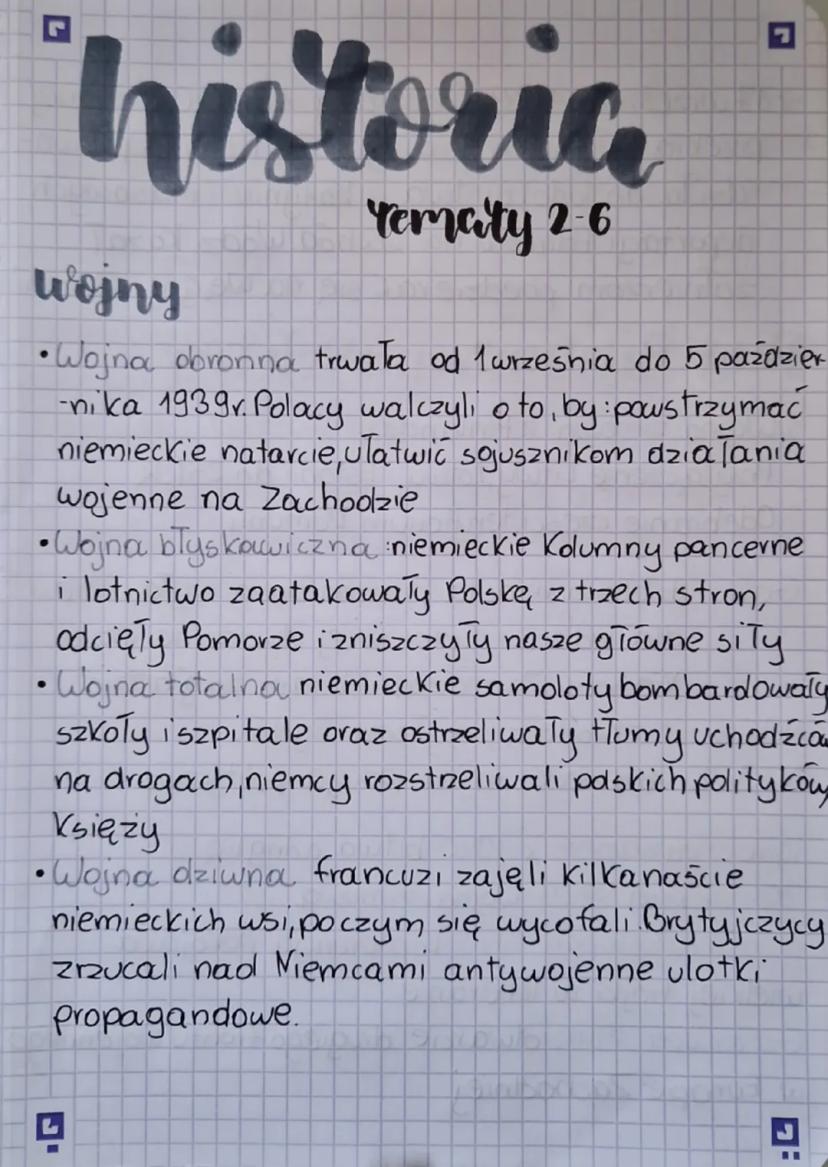 historia
tematy 2-6
wojny
• Wojna obronna trwała od 1 września do 5 paździer-
-nika 1939r. Polacy walczyli o to, by: powstrzymać
niemieckie natarcie, ułatwić sojusznikom działania
wojenne na Zachodzie
• Wojna błyskawiczna : niemieckie kolumny pancerne
i lotnictwo zaatakowały Polskę z trzech stron,
odcięły Pomorze i zniszczyły nasze główne siły
• Wojna totalna niemieckie samoloty bombardowały
szkoły i szpitale oraz ostrzeliwały tłumy uchodźców
na drogach, niemcy rozstrzeliwali polskich polityków,
księży
• Wojna dziwna francuzi zajęli kilkanaście
niemieckich wsi, po czym się wycofali. Brytyjczycy
zrzucali nad Niemcami antywojenne ulotki
propagandowe.